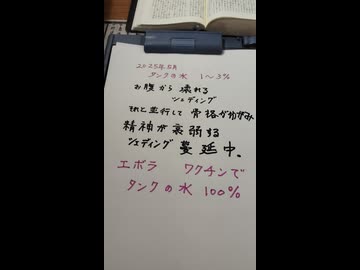 2025年5月
タンクの水 1〜3%
お腹から 壊れる
シェディング
それと並行して 骨格がゆがみ
精神が衰弱する
シェディング 蔓延中、
エボラ ワクチンで
タンクの水 100%